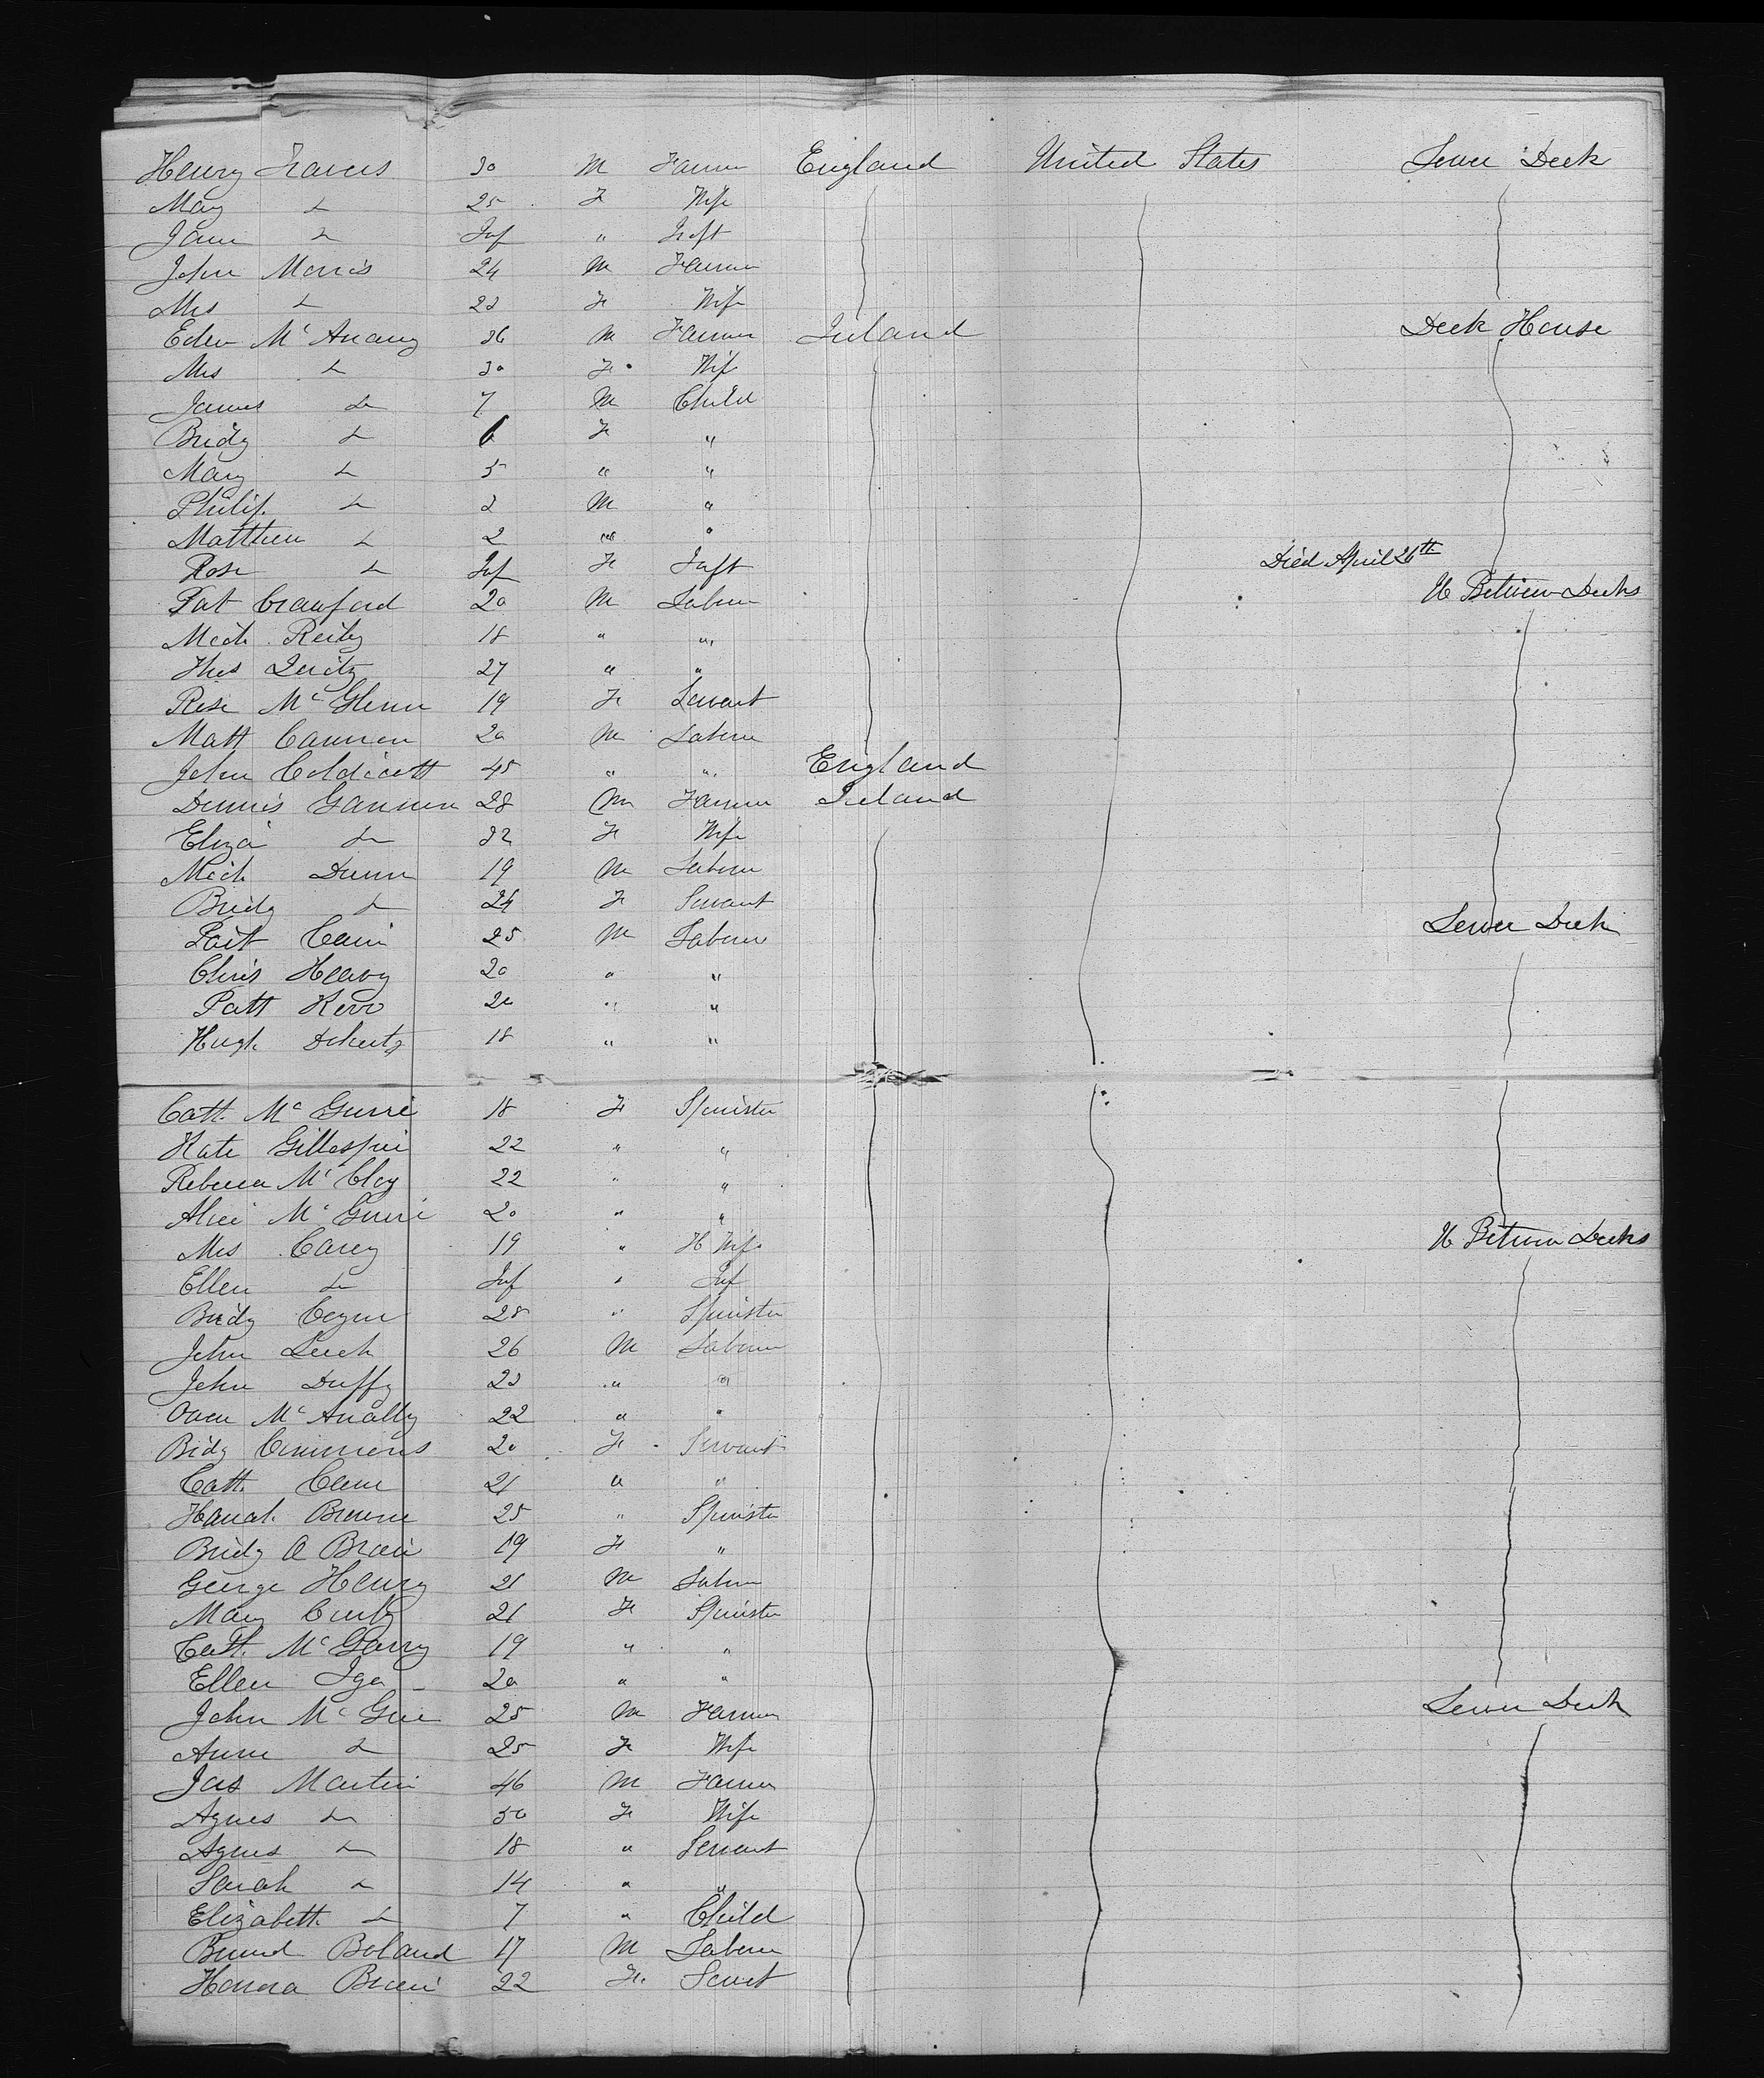 Henry Travers 30 M Farmer England United States Lower Deck
Mary Do 25 F Wife
Jane Do Inf " Inft
John Morris 24 M Farmer
Mrs Do 23 F Wife
Eden McAnany 36 M Farmer Ireland Deck House
Mrs Do 30 F Wife
James Do 7 M Child
Bridg Do 6 F "
Mary Do 5 " "
Philip Do 3 M "
Matthew Do 2 " "
Rose Do Inf F Inft Died April 26th
Pat Crawford 20 M Laborer U Between Decks
Mich Reily 18 " "
Thos 27 " "
Rose McGlenn 19 F Servant
Matt Cannon 20 M Laborer
John Coldicott 45 " " England
Dennis Gannon 28 M Farmer Ireland
Eliza Do 22 F Wife
Mich Dunn 19 M Laborer
Bridg Do 24 F Servant
Patt Cain 25 M Laborer Lower Deck
Chris Heavy 20 " "
Patt Kevo 20 " "
Hugh Doherty 18 " "
Cath McGurre 18 F Spinster
Kate Gillespie 22 " "
Rebecca McCloy 22 " "
Alice McGuire 20 " "
Mrs Carey 19 " H Wife U Between Decks
Ellen Do Inf " Inf
Bridg Coyne 28 " Spinster
John Leech 26 M Laborer
John Duffy 23 " "
Owen McAnally 22 " "
Bidg Cummons 20 F Servant
Cath Cane 21 " "
Hanah Browne 25 " Spinster
Bridg O Brien 19 F "
George Henry 21 M Laborer
Mary Curly 21 F Spinster
Cath McGarry 19 " "
Ellen Igo 20 " "
John McGue 25 M Farmer Lower Deck
Anne Do 25 F Wife
Jas Martin 46 M Farmer
Agnes Do 50 F Wife
Agnes Do 18 " Servant
Sarah Do 14 " "
Elizabeth Do 7 " Child
Bernd Boland 17 M Laborer
Honora Brien 22 F. Servt